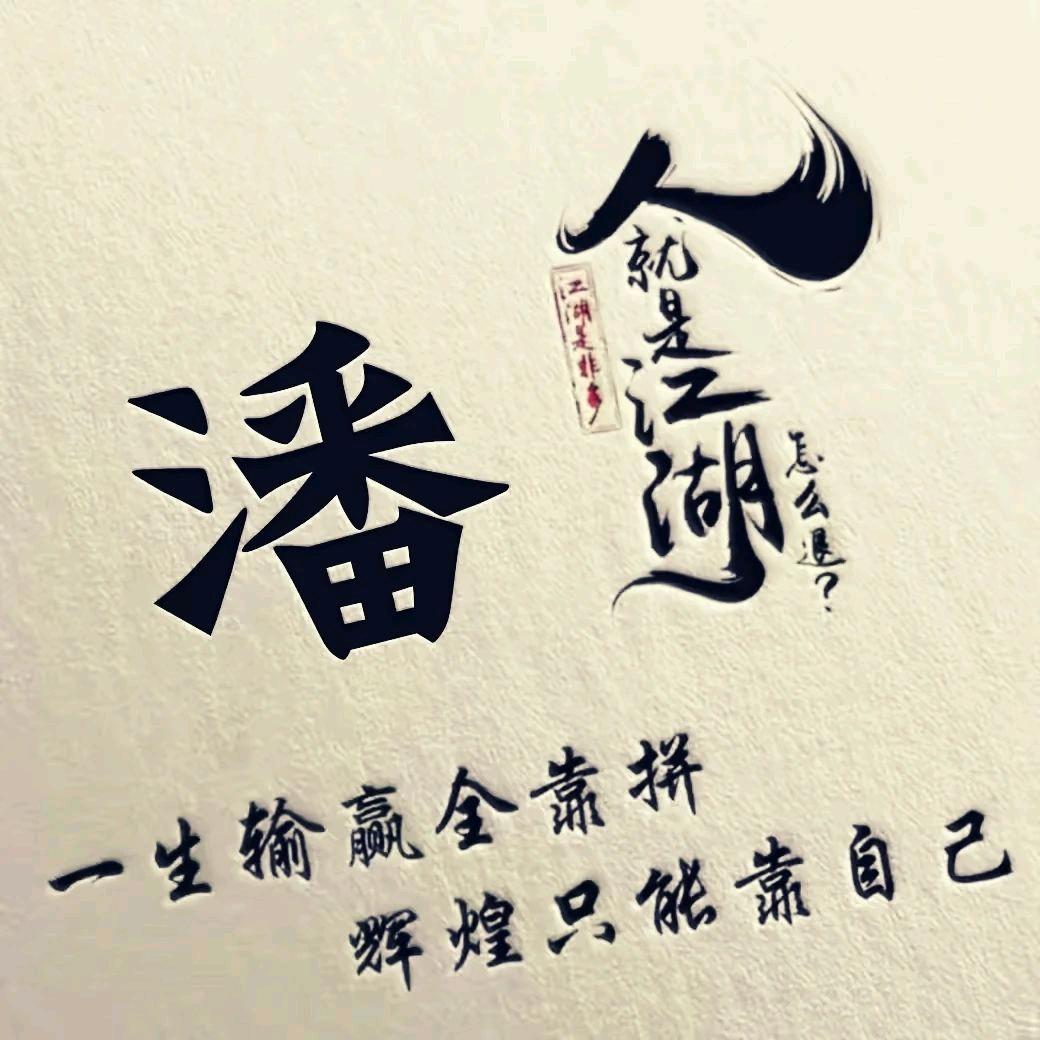 潘
人就是江湖
江湖是非多
怎么退？
一生输赢全靠拼
辉煌只能靠自己